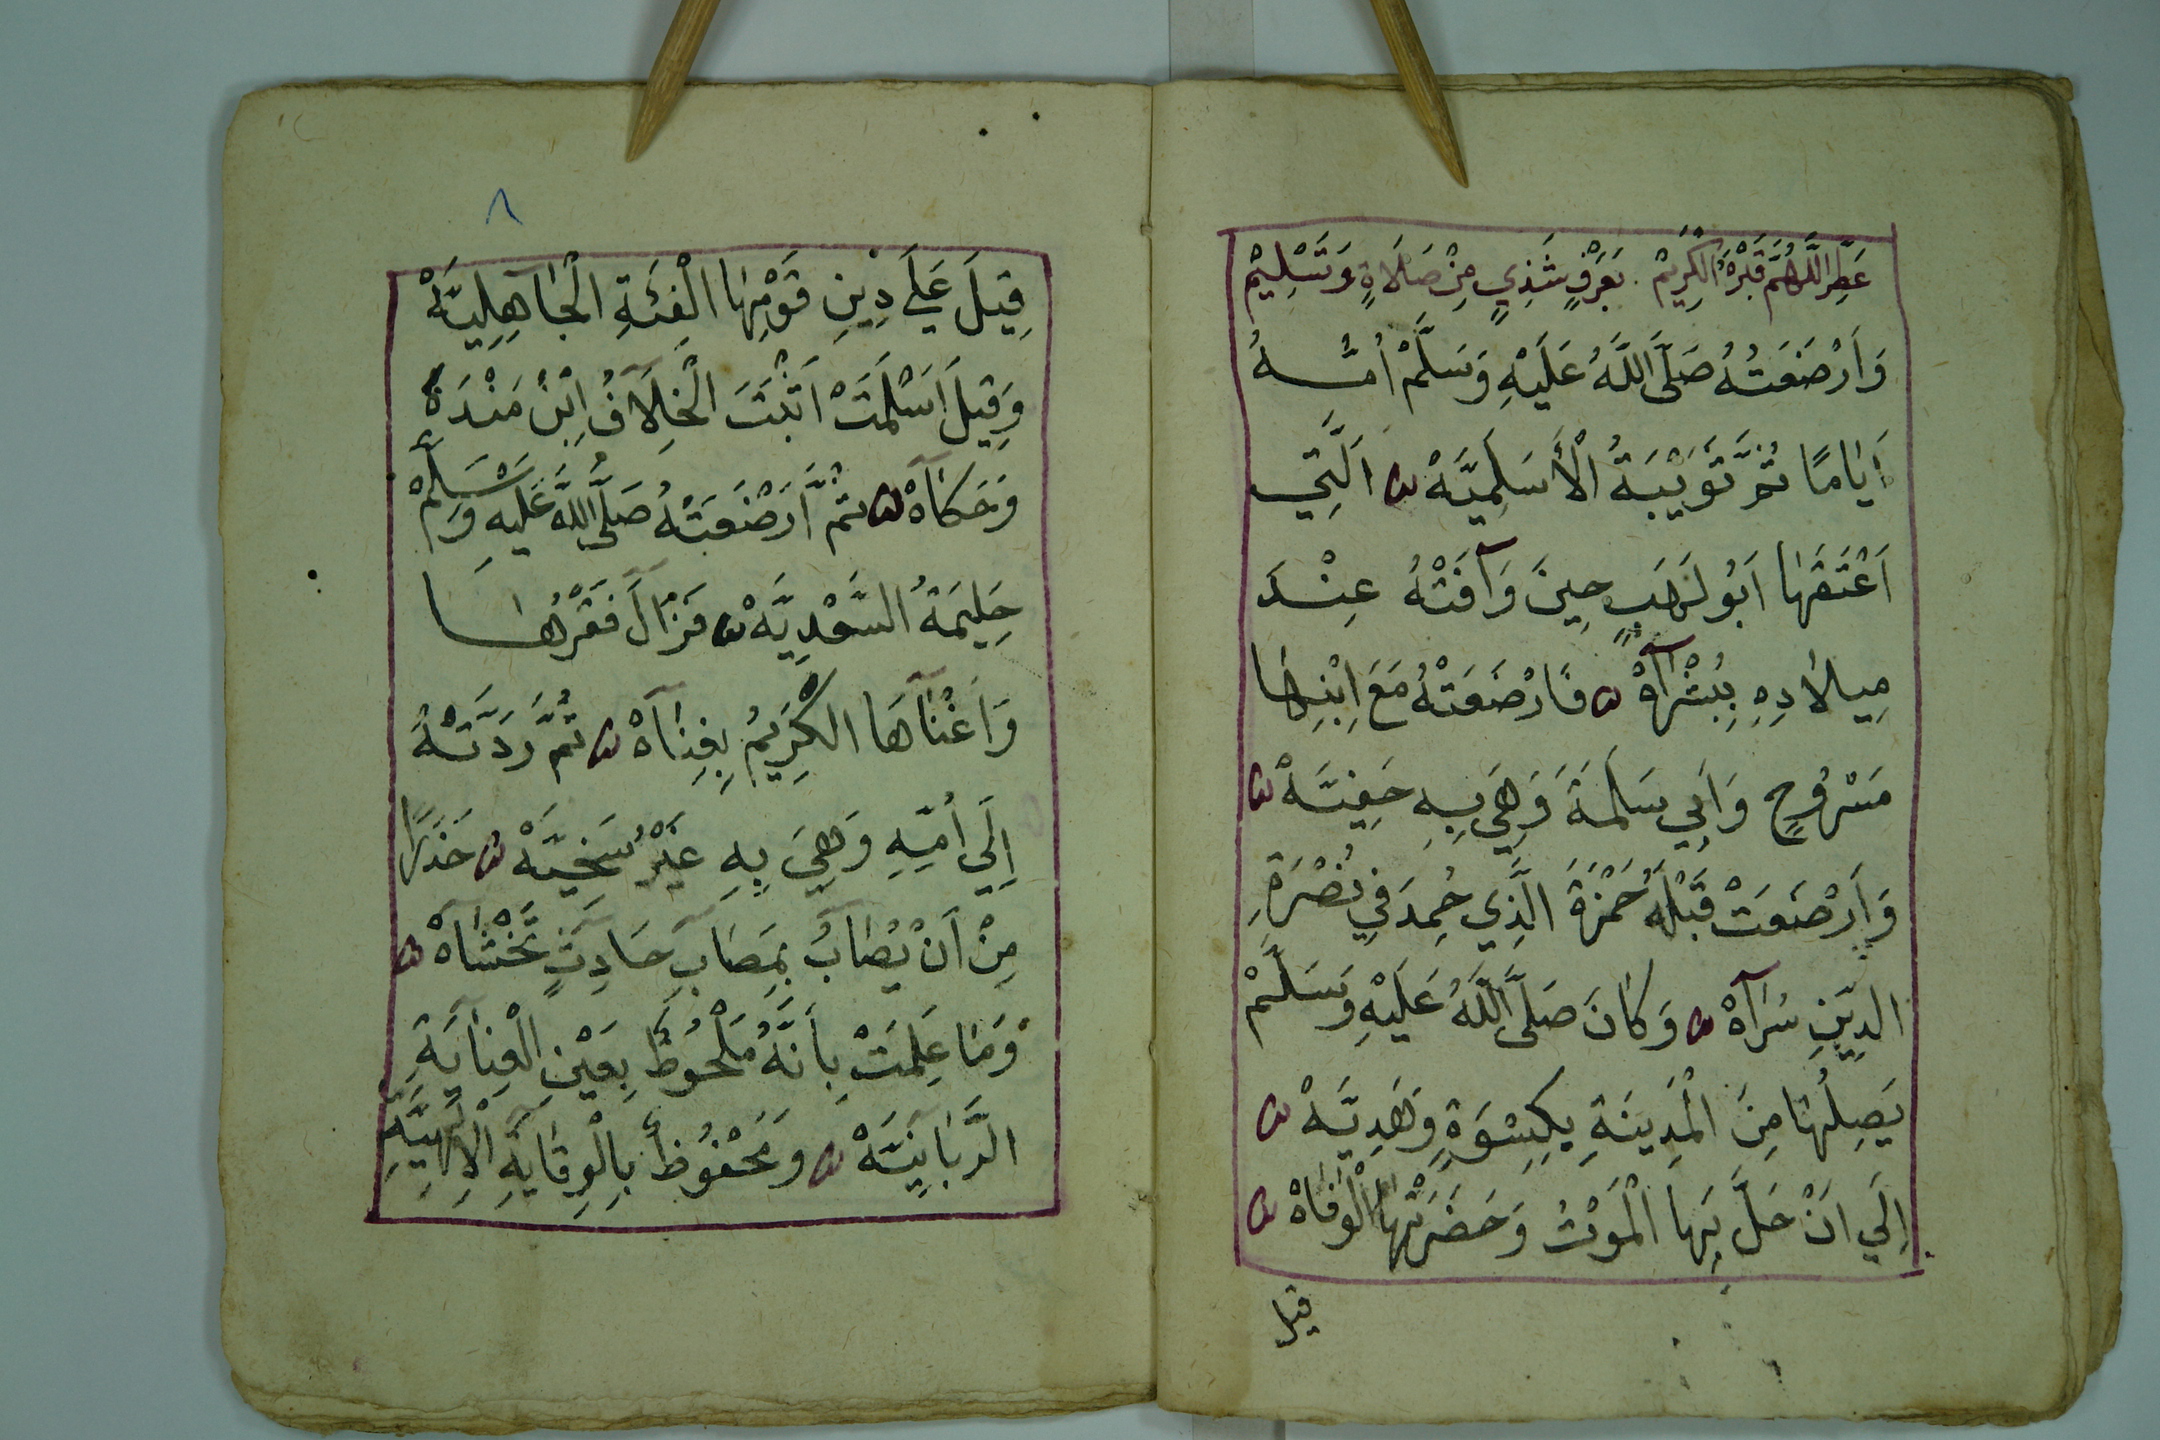 عَطِّرِ اللَّهُمَّ قَبْرَهُ الْكَرِيْمْ . بِعَرْفٍ شَذِيٍ مِنْ صَلَاةٍ وَتَسْلِيْمْ
وَاَرْضَعَتْهُ صَلَّى اللَّهُ عَلَيْهِ وَسَلَّمْ اُمُّهُ
اَيَامًا ثُمَّ ثُوَيْبَةُ الْأَسْلَمِيَّهْ اَلَّتِي
اَعْتَقَهَا اَبُو لَهَبٍ حِينَ وَآفَتْهُ عِنْدَ
مِيلَادِهِ بِبُشْرَآهْ فَارْضَعَتْهُ مَعَ اِبْنِهَا
مَسْرُوحٍ وَاَبِي سَلَمَةَ وَهِيَ بِهِ حَفِيَّهْ
وَاَرْضَعَتْ قَبْلَهُ حَمْزَةَ الَّذِي حُمِدَ فِي نُصْرَةِ
الدِّيْنِ سُرَآهْ وَكَانَ صَلَّى اللَّهُ عَلَيْهِ وَسَلَّمْ
يَصِلُهَا مِنَ الْمَدِينَةِ بِكِسْوَةٍ وَهَدِيَّهْ
اِلَي اَنْ حَلَّ بِهَا الْمَوْتُ وَحَضَرَتْهَا الْوَفَاهْ
قيل
٨
قِيلَ عَلَي دِيْنِ قَوْمِهَا الْفِئَةِ الْجَاهِلِيَّهْ
وَقِيلَ اَسْلَمَتْ اَثْبَتَ الْخِلَافَ ابْنُ مَنْدَهْ
وَحَكَاهْ ثُمَّ اَرْضَعَتْهُ صَلَّى اللَّهُ عَلَيْهِ وَسَلَّمْ
حَلِيمَةُ السَّعْدِيَّهْ فَزَالَ فَقْرُهَا
وَاَغْنَاهَا الْكَرِيْمُ بِغِنَاهْ ثُمَّ رَدَّتْهُ
اِلَي اُمِّهِ وَهِيَ بِهِ غَيْرُ سَخِيَّهْ حَذَرًا
مِنْ اَنْ يُصَابَ بِمَصَابِ حَادِثٍ تَخْشَاهْ
وَمَا عَلِمَتْ بِاَنَّهُ مَلْحُوظٌ بِعَيْنِ الْعِنَايَةِ
الرَّبَانِيَّهْ وَمَحْفُوظٌ بِالْوِقَايَةِ الْاِلَهِيَّهِ